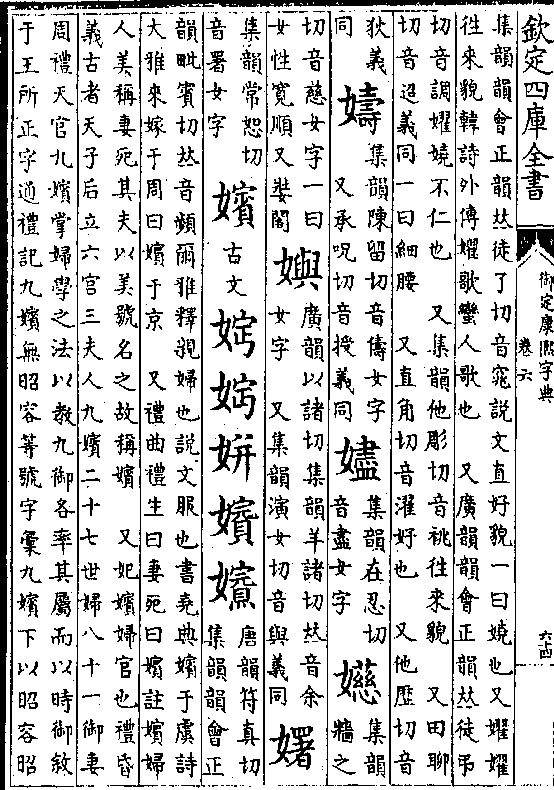 欽定四庫全書
御定康熙字典
卷六
六十四
集韻韻會正韻𠀤徒了切音窕說文直好貌一曰嬈也又嬥嬥
徃來貌韓詩外傳嬥歌蠻人歌也 又廣韻韻會正韻𠀤徒弔
切音調嬥嬈不仁也 又集韻他彫切音祧徃來貌 又田聊
切音迢義同一曰細腰 又直角切音濯好也 又他歷切音
狄義
同
嬦
集韻陳留切音儔女字
又承呪切音授義同
嬧
集韻在忍切
音盡女字
嬨
集韻
牆之
切音慈女字一曰
女性寬順又 閣
嬩
廣韻以諸切集韻羊諸切𠀤音余
女字 又集韻演女切音與義同
集韻常恕切
音署女字
嬪
古文
唐韻符真切
集韻韻會正
韻毗賔切𠀤音頻爾雅釋親婦也說文服也書堯典嬪于虞詩
大雅來嫁于周曰嬪于京 又禮曲禮生曰妻死曰嬪註嬪婦
人美稱妻死其夫以美號名之故稱嬪 又妃嬪婦官也禮昏
義古者天子后立六宮三夫人九嬪二十七世婦八十一御妻
周禮天官九嬪掌婦學之法以教九御各率其屬而以時御敘
于王所正字通禮記九嬪無昭容等號字彙九嬪下以昭容昭